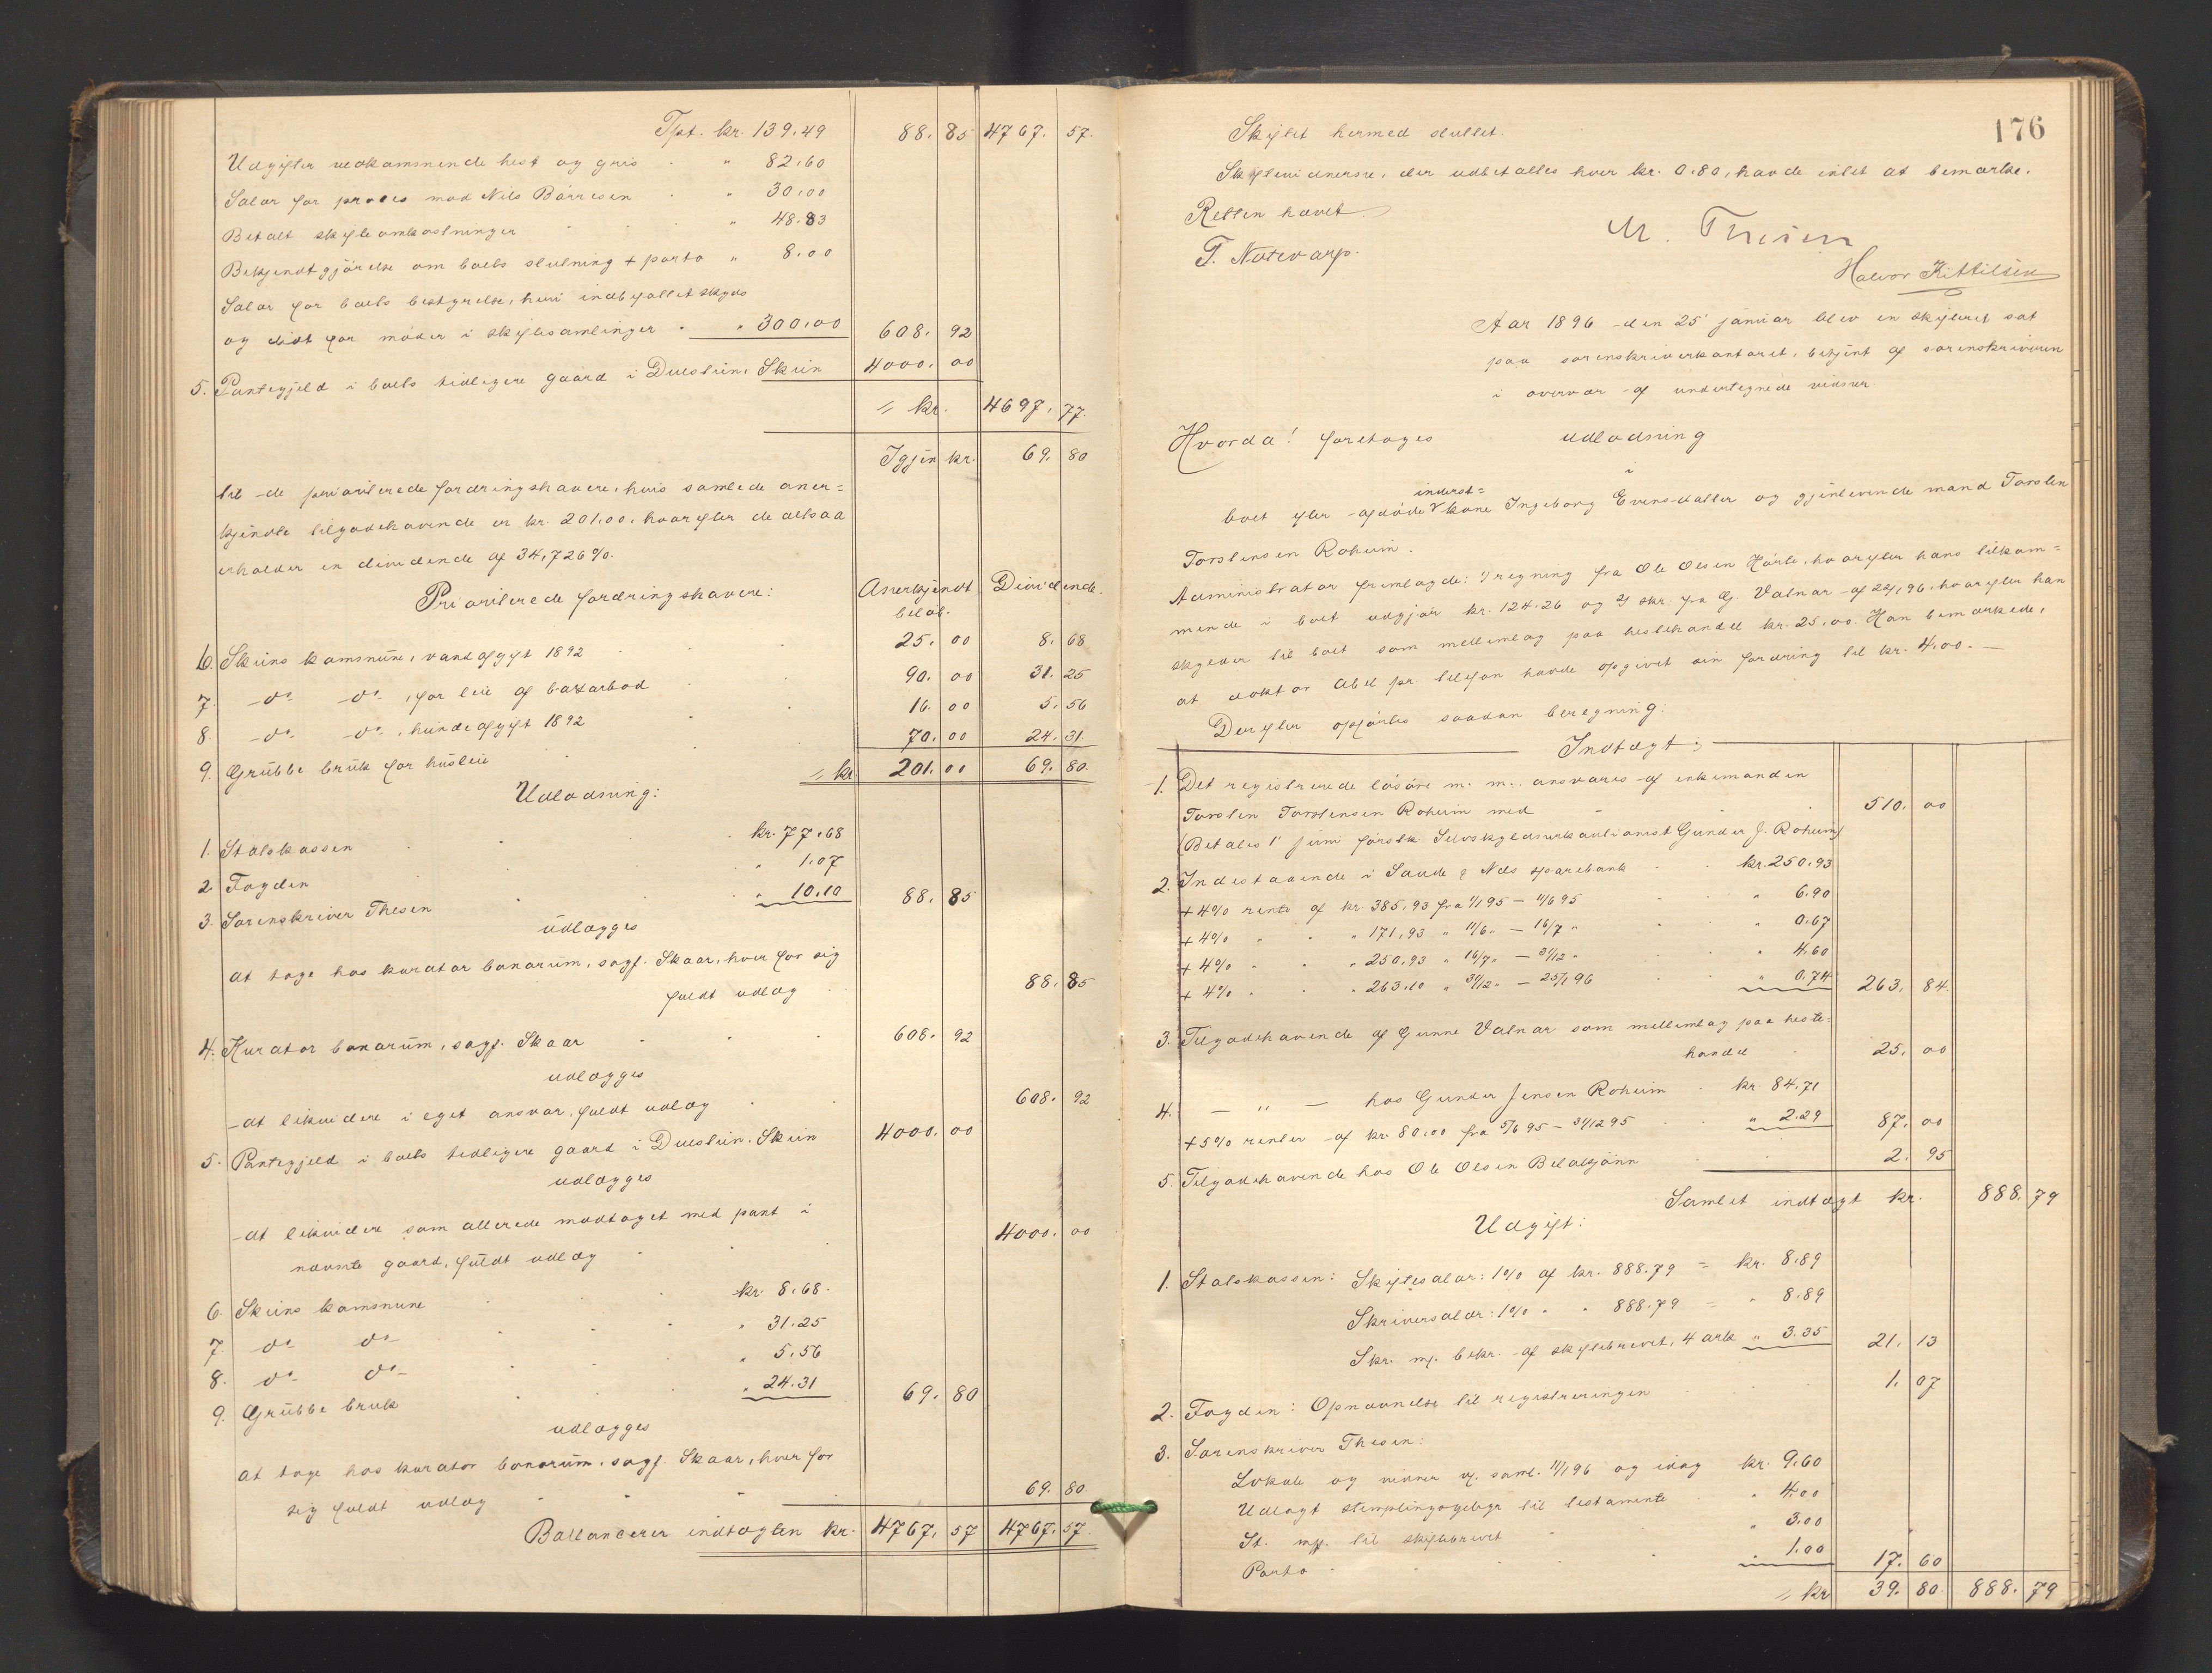 Tpt. kr. 139.49 88.85 4767.57.
Udgifter vedkommende hest og gris " 82.60
Salær for proces mod Nils Børresen " 30.00
Betalt skifteomkostninger " 48.83
Bekjendtgjørelse om boets slutning + porto " 8.00
Salær for boets bestyrelse, heri indbefattet skyds
og diæt for møder i skiftesamlinger " 300.00 608.92
5. Pantegjeld i boets tidligere gaard i Duestien, Skien 4000.00
= kr. 4697.77.
Igjen kr. 69.80
til de prioriterede fordringshavere, hvis samlede aner=
kjendte tilgodehavende er kr. 201.00, hvorefter de altsaa
erholder en dividende af 34,726 %.
Prioriterede fordringshavere: Anerkjendt beløb. Dividende.
6. Skiens kommune, vandafgift 1892 25.00 8.68
7. -do- -do-, for leie af bazarbod 90.00 31.25
8. -do- -do-, hundeafgift 1892 16.00 5.56
9. Grubbe bruk for husleie 70.00 24.31
= kr. 201.00 69.80.
Udlodning:
1. Statskassen kr. 77.68
2. Fogden " 1.07
3. Sorenskriver Thesen " 10.10 88.85
udlægges
at tage hos kurator bonorum, sagf. Skaar, hver for sig
fuldt udlæg 88.85
4. Kurator bonorum, sagf. Skaar 608.92
udlægges
-at likvidere i eget ansvar, fuldt udlæg 608.92
5. Pantegjeld i boets tidligere gaard i Duestien, Skien 4000.00
udlægges
-at likvidere som allerede modtaget med pant i
nævnte gaard, fuldt udlæg 4000.00
6. Skiens kommune kr. 8.68.
7. do do " 31.25
8. do do " 5.56
9. Grubbe bruk " 24.31 69.80
udlægges
at tage hos kurator bonorum, sagf. Skaar, hver for
sig fuldt udlæg 69.80
Ballancerer indtægten kr. 4767.57 4767.57.
176
Skiftet hermed sluttet.
Skiftevidnerne, der udbetaltes hver kr. 0.80, havde intet at bemærke.
Retten hævet.
M. Thesen
T. Notevarp.
Halvor Kittilsen
Aar 1896 den 25' januar blev en skifteret sat
paa sorenskriverkontoret, betjent af sorenskriveren
i overvær af undertegnede vidner.
Hvorda! foretoges udlodning
i
boet efter afdøde inderst=kone Ingeborg Evensdatter og gjenlevende mand Torsten
Torstensen Roheim.
Administrator fremlagde: 1) regning fra Ole Olsen Hørte, hvorefter hans tilkom=
mende i boet udgjør kr. 124.26 og 2) skr. fra G. Valnar af 22/1 96, hvorefter han
skylder til boet som mellemlag paa hestehandel kr. 25.00. Han bemærkede,
at doktor Abel pr. telefon havde opgivet sin fordring til kr. 4.00. —
Derefter opførtes saadan beregning:
Indtægt:
1. Det registrerede løsøre m. m. ansvares af enkemanden
Torsten Torstensen Roheim med 510.00
(Betales 1' juni førstk. Selvskyldnerkautionist Gunder J. Roheim)
2. Indestaaende i Saude & Nes sparebank kr. 250.93
+ 4% rente af kr. 385.93 fra 1/1 95 — 11/6 95 " 6.90
+ 4% " " " 171.93 " 11/6 " — 16/7 " " 0.67
+ 4% " " " 250.93 " 16/7 " — 31/12 " " 4.60
+ 4% " " " 263.10 " 31/12 " — 25/1 96 " 0.74 263.84.
3. Tilgodehavende af Gunne Valnar som mellemlag paa heste=
handel 25.00
4. — " — hos Gunder Jensen Roheim kr. 84.71
+ 5% renter af kr. 80.00 fra 5/6 95 — 31/12 95 " 2.29 87.00
5. Tilgodehavende hos Ole Olsen 2.95
Samlet indtægt kr. 888.79
Udgift:
1. Statskassen: Skiftesalær: 1% af kr. 888.79 = kr. 8.89
Skriversalær: 1% " " 888.79 = " 8.89
Skr. m. bekr. af skiftebrevet, 4 ark " 3.35 21.13
2. Fogden: Opnævnelse til registreringen 1.07
3. Sorenskriver Thesen:
Lokale og vidner v. saml. 11/1 96 og idag kr. 9.60
Udlagt stemplingsgebyr til testamente " 4.00
St. mp. til skiftebrevet " 3.00
Porto " 1.00 17.60
= kr. 39.80. 888.79